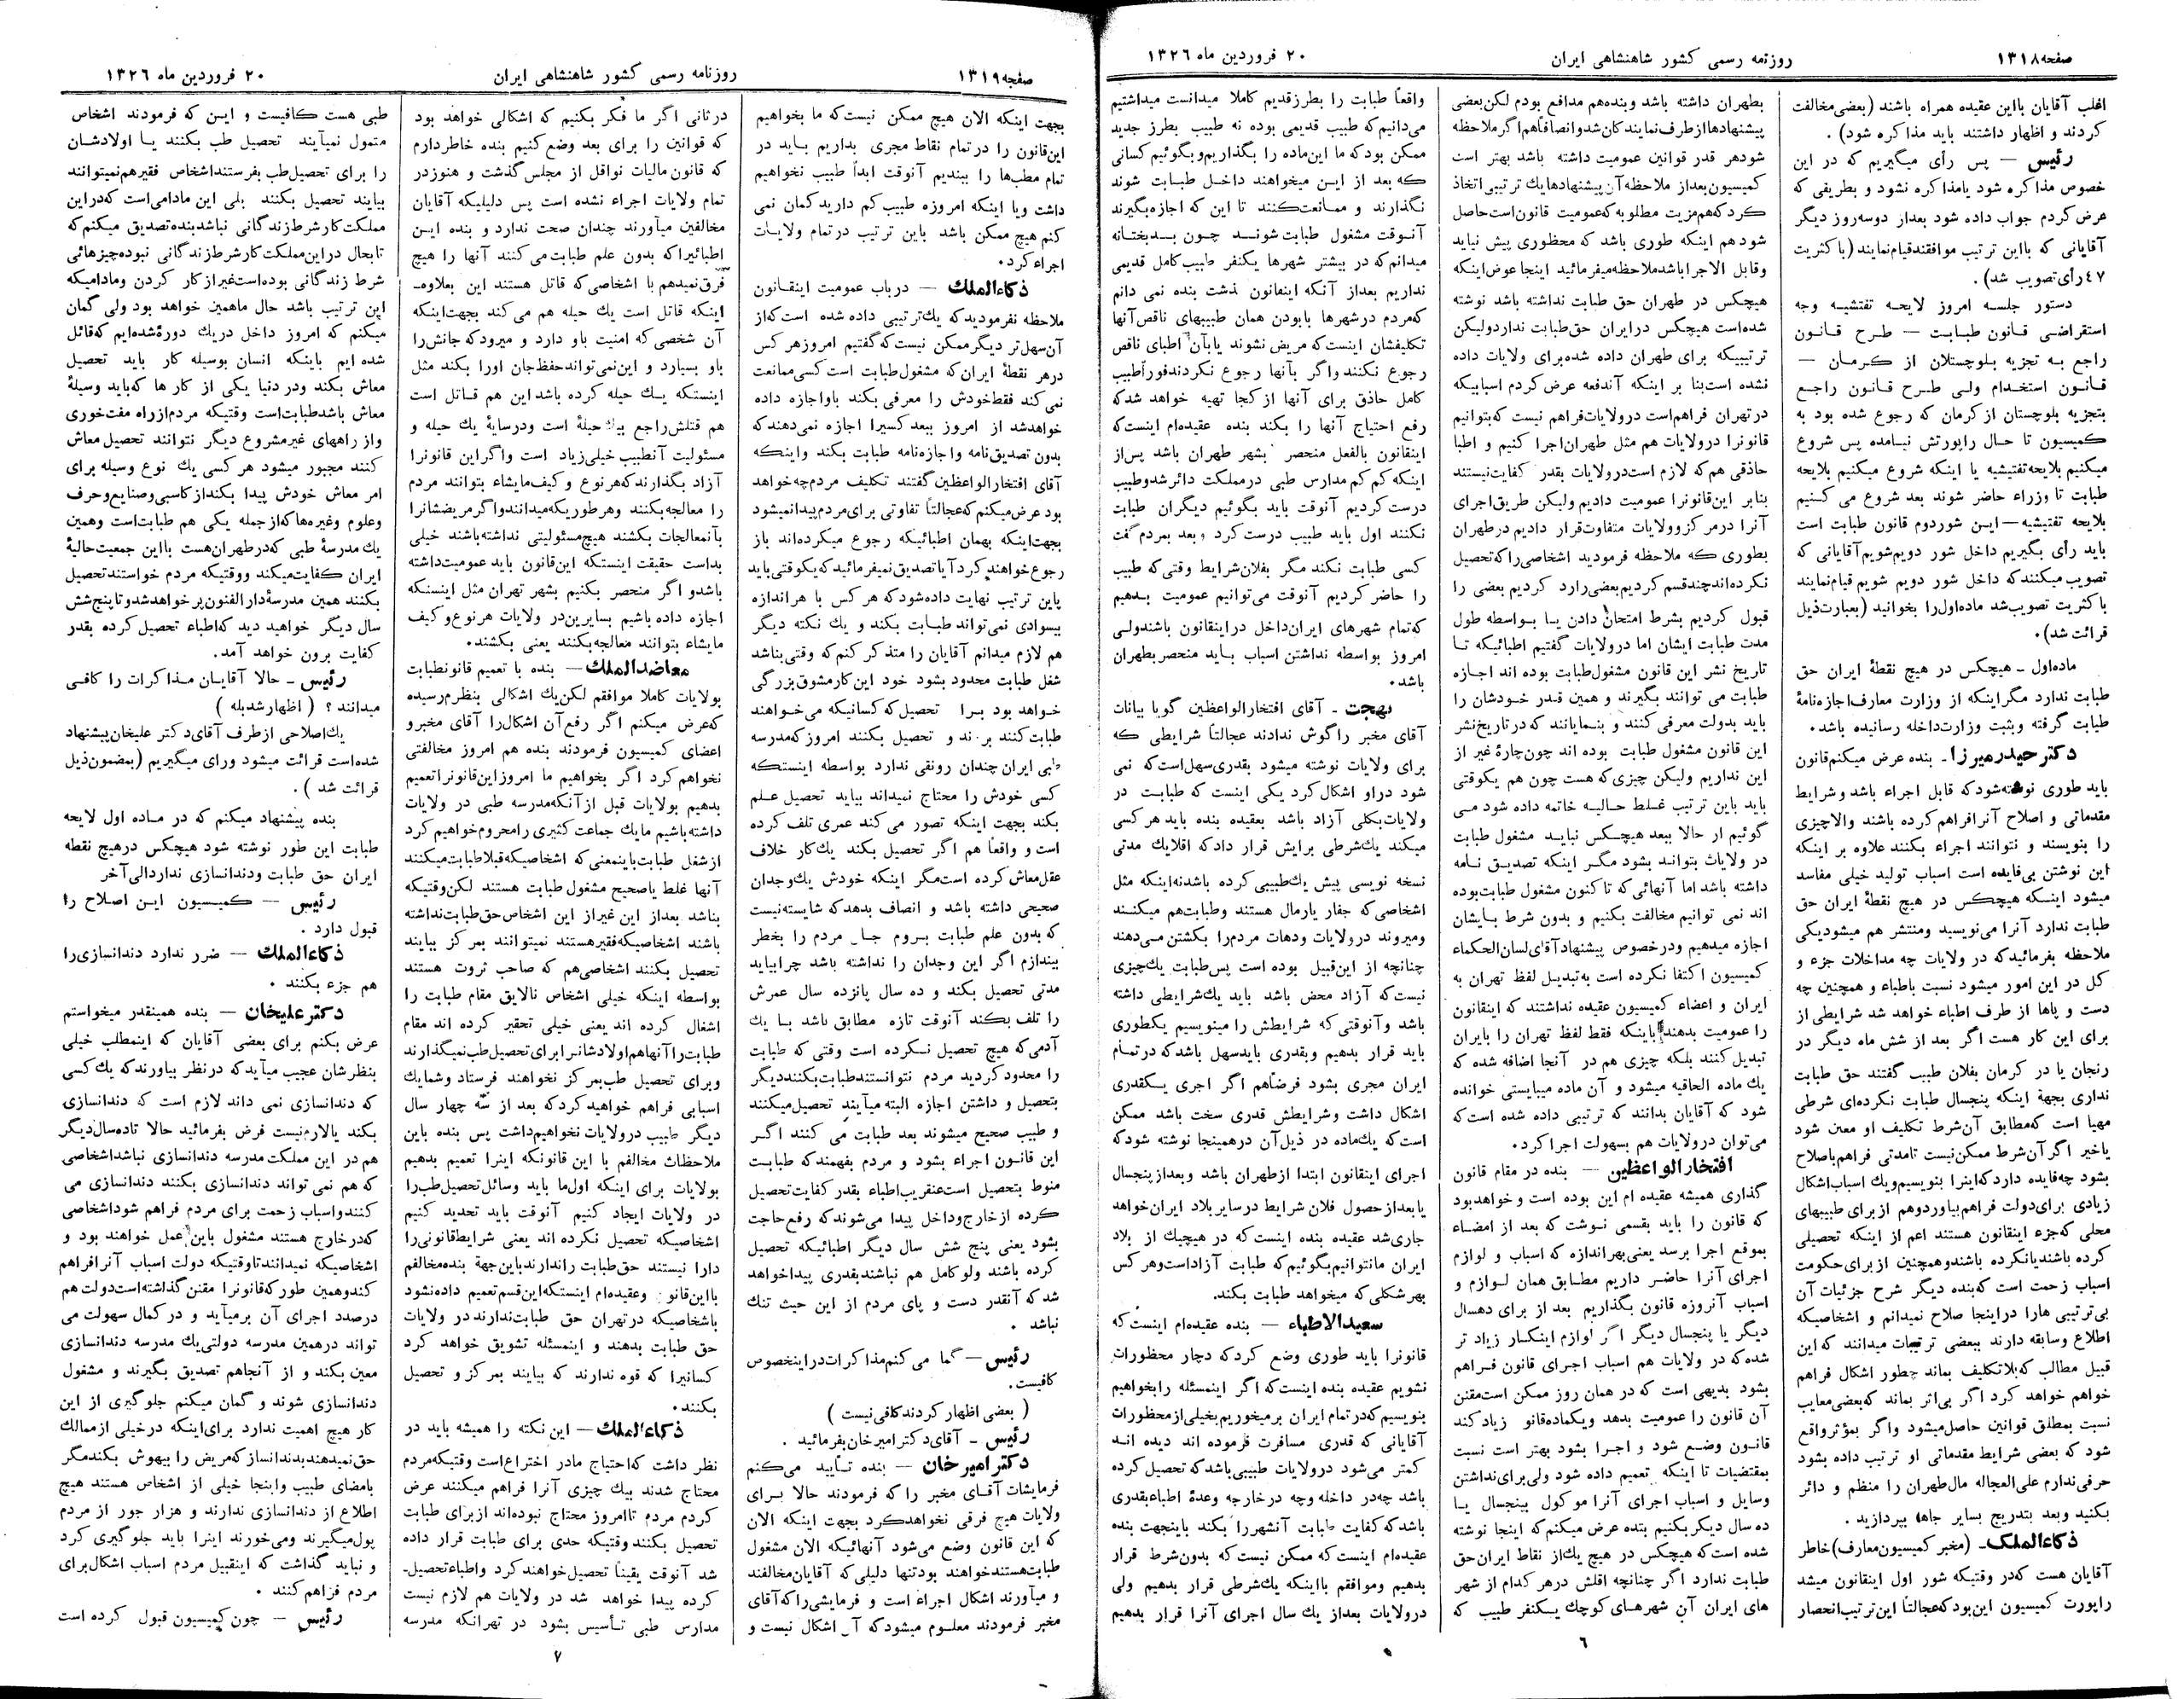 صفحه۱۳۱۸
روزنامه رسمی کشور شاهنشاهی ایران
۲۰ فروردین ماه ۱۳۲۶
اغلب آقایان بااین عقیده همراه باشند (بعضی مخالفت
کردند و اظهار داشتند باید مذاکره شود) .
رئیس — پس رأی میگیریم که در این
خصوص مذاکره شود یامذاکره نشود و بطریقی که
عرض کردم جواب داده شود بعداز دوسه روز دیگر
آقایانی که بااین ترتیب موافقند قیام نمایند (باکثریت
۴۷ رأی تصویب شد) .
دستور جلسه امروز لایحه تفتشیه وجه
استقراضی قانون طبابت — طرح قانون
راجع به تجزیه بلوچستلان از کرمان —
قانون استخدام ولی طرح قانون راجع
بتجزیه بلوچستان از کرمان که رجوع شده بود به
کمیسیون تا حال راپورتش نیامده پس شروع
میکنیم بلایحه تفتیشیه یا اینکه شروع میکنیم بلایحه
طبابت تا وزراء حاضر شوند بعد شروع می کنیم
بلایحه تفتیشیه — این شوردوم قانون طبابت است
باید رأی بگیریم داخل شور دویم شویم آقایانی که
تصویب میکنند که داخل شور دویم شویم قیام نمایند
باکثریت تصویب شد ماده اول را بخوانید (بعبارت ذیل
قرائت شد) .
ماده اول — هیچکس در هیچ نقطۀ ایران حق
طبابت ندارد مگر اینکه از وزارت معارف اجازه نامۀ
طبابت گرفته وبثبت وزارت داخله رسانیده باشد .
دکتر حیدر میرزا — بنده عرض میکنم قانون
باید طوری نوشته شود که قابل اجراء باشد و شرایط
مقدماتی و اصلاح آنرا فراهم کرده باشند والاچیزی
را بنویسند و نتوانند اجراء بکنند علاوه بر اینکه
این نوشتن بی فایده است اسباب تولید خیلی مفاسد
میشود اینکه هیچکس در هیچ نقطۀ ایران حق
طبابت ندارد آنرا می نویسید ومنتشر هم میشود یکی
ملاحظه بفرمائید که در ولایات چه مداخلات جزء و
کل در این امور میشود نسبت باطباء و همچنین چه
دست و پاها از طرف اطباء خواهد شد شرایطی از
برای این کار هست اگر بعد از شش ماه دیگر در
رنجان یا در کرمان بفلان طبیب گفتند حق طبابت
نداری بجهة اینکه پنجسال طبابت نکرده ای شرطی
مهیا است که مطابق آن شرط تکلیف او معین شود
یاخیر اگر آن شرط ممکن نیست تامدتی فراهم باصلاح
بشود چه فایده دارد که اینرا بنویسیم و یك اسباب اشکال
زیادی برای دولت فراهم بیاورد و هم از برای طبیبهای
محلی که جزء اینقانون هستند اعم از اینکه تحصیلی
کرده باشند یانکرده باشند وهمچنین از برای حکومت
اسباب زحمت است که بنده دیگر شرح جزئیات آن
بی ترتیبی هارا در اینجا صلاح نمیدانم و اشخاصیکه
اطلاع وسابقه دارند ببعضی ترتیبات میدانند که این
قبیل مطالب که بلاتکلیف بماند چطور اشکال فراهم
خواهم خواهد کرد اگر بی اثر بماند که بعضی معایب
نسبت بمطلق قوانین حاصل میشود واگر بمؤثر واقع
شود که بعضی شرایط مقدماتی او ترتیب داده بشود
حرفی ندارم علی العجاله مال طهران را منظم و دائر
بکنید وبعد بتدریج بسایر جاها بپردازید .
ذکاءالملك — (مخبر کمیسیون معارف) خاطر
آقایان هست که در وقتیکه شور اول اینقانون میشد
راپورت کمیسیون این بود که عجالتاً این ترتیب انحصار
بطهران داشته باشد وبنده هم مدافع بودم لکن بعضی
پیشنهادها از طرف نمایندگان شد و انصافاً هم اگر ملاحظه
شود هر قدر قوانین عمومیت داشته باشد بهتر است
کمیسیون بعد از ملاحظه آن پیشنهادها یك ترتیبی اتخاذ
کرد که هم مزیت مطلوبه که عمومیت قانون است حاصل
شود هم اینکه طوری باشد که محظوری پیش نیاید
وقابل الاجرا باشد ملاحظه میفرمائید اینجا عوض اینکه
هیچکس در طهران حق طبابت نداشته باشد نوشته
شده است هیچکس در ایران حق طبابت ندارد ولیکن
ترتیبیکه برای طهران داده شده برای ولایات داده
نشده است بنا بر اینکه آندفعه عرض کردم اسبابیکه
در تهران فراهم است در ولایات فراهم نیست که بتوانیم
قانونرا در ولایات هم مثل طهران اجرا کنیم و اطبا
حاذقی هم که لازم است در ولایات بقدر کفایت نیستند
بنابر این قانونرا عمومیت دادیم ولیکن طریق اجرای
آنرا در مرکز وولایات متفاوت قرار دادیم در طهران
بطوری که ملاحظه فرمودید اشخاصی را که تحصیل
نکرده اند چند قسم کردیم بعضی را رد کردیم بعضی را
قبول کردیم بشرط امتحان دادن یا بواسطه طول
مدت طبابت ایشان اما در ولایات گفتیم اطبائیکه تا
تاریخ نشر این قانون مشغول طبابت بوده اند اجازه
طبابت می توانند بگیرند و همین قدر خودشان را
باید بدولت معرفی کنند و بنمایانند که در تاریخ نشر
این قانون مشغول طبابت بوده اند چون چارۀ غیر از
این نداریم ولیکن چیزی که هست چون هم یکوقتی
باید باین ترتیب غلط حالیه خاتمه داده شود می
گوئیم از حالا ببعد هیچکس نباید مشغول طبابت
در ولایات بتواند بشود مگر اینکه تصدیق نامه
داشته باشد اما آنهائی که تاکنون مشغول طبابت بوده
اند نمی توانیم مخالفت بکنیم و بدون شرط بایشان
اجازه میدهیم ودر خصوص پیشنهاد آقای لسان الحکماء
کمیسیون اکتفا نکرده است به تبدیل لفظ تهران به
ایران و اعضاء کمیسیون عقیده نداشتند که اینقانون
را عمومیت بدهند باینکه فقط لفظ تهران را بایران
تبدیل کنند بلکه چیزی هم در آنجا اضافه شده که
یك ماده الحاقیه میشود و آن ماده میبایستی خوانده
شود که آقایان بدانند که ترتیبی داده شده است که
می توان در ولایات هم بسهولت اجرا کرد .
افتخار الواعظین — بنده در مقام قانون
گذاری همیشه عقیده ام این بوده است و خواهد بود
که قانون را باید بقسمی نوشت که بعد از امضاء
بموقع اجرا برسد یعنی بهر اندازه که اسباب و لوازم
اجرای آنرا حاضر داریم مطابق همان لوازم و
اسباب آنروزه قانون بگذاریم بعد از برای دهسال
دیگر یا پنجسال دیگر اگر لوازم اینکار زیاد تر
شده که در ولایات هم اسباب اجرای قانون فراهم
بشود بدیهی است که در همان روز ممکن است مقنن
آن قانون را عمومیت بدهد ویکماده قانو زیاد کند
قانون وضع شود و اجرا بشود بهتر است نسبت
بمقتضیات تا اینکه تعمیم داده شود ولی برای نداشتن
وسایل و اسباب اجرای آنرا موکول بپنجسال یا
ده سال دیگر بکنیم بنده عرض میکنم که اینجا نوشته
شده است که هیچکس در هیچ یك از نقاط ایران حق
طبابت ندارد اگر چنانچه اقلش در هر کدام از شهر
های ایران آن شهرهای کوچك یکنفر طبیب که
واقعاً طبابت را بطرز قدیم کاملا میدانست میداشتیم
می دانیم که طبیب قدیمی بوده نه طبیب بطرز جدید
ممکن بود که ما این ماده را بگذاریم و بگوئیم کسانی
که بعد از این میخواهند داخل طبابت شوند
نگذارند و ممانعت کنند تا این که اجازه بگیرند
آنوقت مشغول طبابت شوند چون بدبختانه
میدانم که در بیشتر شهرها یکنفر طبیب کامل قدیمی
نداریم بعد از آنکه اینقانون گذشت بنده نمی دانم
که مردم در شهرها بابودن همان طبیبهای ناقص آنها
تکلیفشان اینست که مریض نشوند یابآن اطبای ناقص
رجوع نکنند واگر بآنها رجوع نکردند فوراً طبیب
کامل حاذق برای آنها از کجا تهیه خواهد شد که
رفع احتیاج آنها را بکند بنده عقیده ام اینست که
اینقانون بالفعل منحصر بشهر طهران باشد پس از
اینکه کم کم مدارس طبی در مملکت دائر شد و طبیب
درست کردیم آنوقت باید بگوئیم دیگران طبابت
نکنند اول باید طبیب درست کرد و بعد بمردم گفت
کسی طبابت نکند مگر بفلان شرایط وقتی که طبیب
را حاضر کردیم آنوقت می توانیم عمومیت بدهیم
که تمام شهرهای ایران داخل در اینقانون باشند ولی
امروز بواسطه نداشتن اسباب باید منحصر بطهران
باشد .
بهجت — آقای افتخار الواعظین گویا بیانات
آقای مخبر را گوش ندادند عجالتاً شرایطی که
برای ولایات نوشته میشود بقدری سهل است که نمی
شود در او اشکال کرد یکی اینست که طبابت در
ولایات بکلی آزاد باشد بعقیده بنده باید هر کسی
میکند یك شرطی برایش قرار داد که اقلا یك مدتی
نسخه نویسی پیش یك طبیبی کرده باشد نه اینکه مثل
اشخاصی که جفار یارمال هستند وطبابت هم میکنند
ومیروند در ولایات ودهات مردم را بکشتن می دهند
چنانچه از این قبیل بوده است پس طبابت یك چیزی
نیست که آزاد محض باشد باید یك شرایطی داشته
باشد و آنوقتی که شرایطش را مینویسیم یکطوری
باید قرار بدهیم وبقدری باید سهل باشد که در تمام
ایران مجری بشود فرضاً هم اگر اجری یکقدری
اشکال داشت وشرایطش قدری سخت باشد ممکن
است که یك ماده در ذیل آن در همینجا نوشته شود که
اجرای اینقانون ابتدا از طهران باشد وبعد از پنجسال
یا بعد از حصول فلان شرایط در سایر بلاد ایران خواهد
جاری شد عقیده بنده اینست که در هیچیك از بلاد
ایران ما نتوانیم بگوئیم که طبابت آزاد است و هر کس
بهر شکلی که میخواهد طبابت بکند .
سعید الاطباء — بنده عقیده ام اینست که
قانونرا باید طوری وضع کرد که دچار محظورات
نشویم عقیده بنده اینست که اگر اینمسئله را بخواهیم
بنویسیم که در تمام ایران بر میخوریم بخیلی از محظورات
آقایانی که قدری مسافرت فرموده اند دیده اند
کمتر می شود در ولایات طبیبی باشد که تحصیل کرده
باشد چه در داخله وچه در خارجه وعدۀ اطباء بقدری
باشد که کفایت طبابت آنشهر را بکند باینجهت بنده
عقیده ام اینست که ممکن نیست که بدون شرط قرار
بدهیم وموافقم بااینکه یك شرطی قرار بدهیم ولی
در ولایات بعد از یك سال اجرای آنرا قرار بدهیم
۶
صفحه ۱۳۱۹
روزنامه رسمی کشور شاهنشاهی ایران
۲۰ فروردین ماه ۱۳۲۶
بجهت اینکه الان هیچ ممکن نیست که ما بخواهیم
این قانون را در تمام نقاط مجری بداریم باید در
تمام مطب ها را ببندیم آنوقت ابداً طبیب نخواهیم
داشت ویا اینکه امروزه طبیب کم دارید گمان نمی
کنم هیچ ممکن باشد باین ترتیب در تمام ولایات
اجراء کرد .
ذکاءالملك — در باب عمومیت اینقانون
ملاحظه نفرمودید که یك ترتیبی داده شده است که از
آن سهل تر دیگر ممکن نیست که گفتیم امروز هر کس
در هر نقطۀ ایران که مشغول طبابت است کسی ممانعت
نمی کند فقط خودش را معرفی بکند باو اجازه داده
خواهد شد از امروز ببعد کسیرا اجازه نمی دهند که
بدون تصدیق نامه و اجازه نامه طبابت بکند و اینکه
آقای افتخار الواعظین گفتند تکلیف مردم چه خواهد
بود عرض میکنم که عجالتاً تفاوتی برای مردم پیدا نمیشود
بجهت اینکه بهمان اطبائیکه رجوع میکرده اند باز
رجوع خواهند کرد آیا تصدیق نمیفرمائید که یکوقتی باید
باین ترتیب نهایت داده شود که هر کس با هر اندازه
بیسوادی نمی تواند طبابت بکند و یك نکته دیگر
هم لازم میدانم آقایان را متذکر کنم که وقتی بناشد
شغل طبابت محدود بشود خود این کار مشوق بزرگی
خواهد بود برا تحصیل که کسانیکه می خواهند
طبابت کنند بروند و تحصیل بکنند امروز که مدرسه
طبی ایران چندان رونقی ندارد بواسطه اینستکه
کسی خودش را محتاج نمیداند بیاید تحصیل علم
بکند بجهت اینکه تصور می کند عمری تلف کرده
است و واقعاً هم اگر تحصیل بکند یك کار خلاف
عقل معاش کرده است مگر اینکه خودش یك وجدان
صحیحی داشته باشد و انصاف بدهد که شایسته نیست
که بدون علم طبابت بروم جان مردم را بخطر
بیندازم اگر این وجدان را نداشته باشد چرا بیاید
مدتی تحصیل بکند و ده سال پانزده سال عمرش
را تلف بکند آنوقت تازه مطابق باشد با یك
آدمی که هیچ تحصیل نکرده است وقتی که طبابت
را محدود کردید مردم نتوانستند طبابت بکنند دیگر
بتحصیل و داشتن اجازه البته میآیند تحصیل میکنند
و طبیب صحیح میشوند بعد طبابت می کنند اگر
این قانون اجراء بشود و مردم بفهمند که طبابت
منوط بتحصیل است عنقریب اطباء بقدر کفایت تحصیل
کرده از خارج و داخل پیدا می شوند که رفع حاجت
بشود یعنی پنج شش سال دیگر اطبائیکه تحصیل
کرده باشند ولو کامل هم نباشند بقدری پیدا خواهد
شد که آنقدر دست و پای مردم از این حیث تنك
نباشد .
رئیس — گما می کنم مذاکرات در اینخصوص
کافیست .
( بعضی اظهار کردند کافی نیست )
رئیس — آقای دکتر امیر خان بفرمائید .
دکتر امیر خان — بنده تأیید می کنم
فرمایشات آقای مخبر را که فرمودند حالا برای
ولایات هیچ فرقی نخواهد کرد بجهت اینکه الان
که این قانون وضع می شود آنهائیکه الان مشغول
طبابت هستند خواهند بود تنها دلیلی که آقایان مخالفند
و میآورند اشکال اجراء است و فرمایشی را که آقای
مخبر فرمودند معلوم میشود که آن اشکال نیست و
در ثانی اگر ما فکر بکنیم که اشکالی خواهد بود
که قوانین را برای بعد وضع کنیم بنده خاطر دارم
که قانون مالیات نواقل از مجلس گذشت و هنوز در
تمام ولایات اجراء نشده است پس دلیلیکه آقایان
مخالفین میآورند چندان صحت ندارد و بنده این
اطبائیرا که بدون علم طبابت می کنند آنها را هیچ
فرق نمیدهم با اشخاصی که قاتل هستند این بعلاوه
اینکه قاتل است یك حیله هم می کند بجهت اینکه
آن شخصی که امنیت باو دارد و میرود که جانش را
باو بسپارد و این نمی تواند حفظ جان اورا بکند مثل
اینستکه یك حیله کرده باشد این هم قاتل است
هم قتلش راجع بیك حیلۀ است ودر سایۀ یك حیله و
مسئولیت آنطبیب خیلی زیاد است و اگر این قانونرا
آزاد بگذارند که هر نوع و کیف مایشاء بتوانند مردم
را معالجه بکنند وهر طوریکه میدانند و اگر مریضشانرا
بآنمعالجات بکشند هیچ مسئولیتی نداشته باشند خیلی
بد است حقیقت اینستکه این قانون باید عمومیت داشته
باشد و اگر منحصر بکنیم بشهر تهران مثل اینستکه
اجازه داده باشیم بسایرین در ولایات هر نوع و کیف
مایشاء بتوانند معالجه بکنند یعنی بکشند .
معاضد الملك — بنده با تعمیم قانون طبابت
بولایات کاملا موافقم لکن یك اشکالی بنظرم رسیده
که عرض میکنم اگر رفع آن اشکال را آقای مخبر و
اعضای کمیسیون فرمودند بنده هم امروز مخالفتی
نخواهم کرد اگر بخواهیم ما امروز این قانونرا تعمیم
بدهیم بولایات قبل از آنکه مدرسه طبی در ولایات
داشته باشیم ما یك جماعت کثیری را محروم خواهیم کرد
از شغل طبابت باینمعنی که اشخاصیکه قبلا طبابت میکنند
آنها غلط یا صحیح مشغول طبابت هستند لکن وقتیکه
بناشد بعد از این غیر از این اشخاص حق طبابت نداشته
باشند اشخاصیکه فقیر هستند نمیتوانند بمرکز بیایند
تحصیل بکنند اشخاصی هم که صاحب ثروت هستند
بواسطه اینکه خیلی اشخاص نالایق مقام طبابت را
اشغال کرده اند یعنی خیلی تحقیر کرده اند مقام
طبابت را آنها هم اولادشانرا برای تحصیل طب نمیگذارند
وبرای تحصیل طب بمرکز نخواهند فرستاد و شما یك
اسبابی فراهم خواهید کرد که بعد از سه چهار سال
دیگر طبیب در ولایات نخواهیم داشت پس بنده باین
ملاحظات مخالفم با این قانونکه اینرا تعمیم بدهیم
بولایات برای اینکه اول ما باید وسائل تحصیل طب را
در ولایات ایجاد کنیم آنوقت باید تحدید کنیم
اشخاصیکه تحصیل نکرده اند یعنی شرایط قانونی را
دارا نیستند حق طبابت را ندارند باین جهة بنده مخالفم
بااین قانو وعقیده ام اینستکه این قسم تعمیم داده نشود
باشخاصیکه در تهران حق طبابت ندارند در ولایات
حق طبابت بدهند و اینمسئله تشویق خواهد کرد
کسانیرا که قوه ندارند که بیایند بمرکز و تحصیل
بکنند .
ذکاءالملك — این نکته را همیشه باید در
نظر داشت که احتیاج مادر اختراع است وقتیکه مردم
محتاج شدند بیك چیزی آنرا فراهم میکنند عرض
کردم مردم تاامروز محتاج نبوده اند از برای طبابت
تحصیل بکنند وقتیکه حدی برای طبابت قرار داده
شد آنوقت یقیناً تحصیل خواهند کرد و اطباء تحصیل
کرده پیدا خواهد شد در ولایات هم لازم نیست
مدارس طبی تأسیس بشود در تهرانکه مدرسه
طبی هست کافیست و این که فرمودند اشخاص
متمول نمیآیند تحصیل طب بکنند یا اولادشان
را برای تحصیل طب بفرستند اشخاص فقیر هم نمیتوانند
بیایند تحصیل بکنند بلی این مادامی است که در این
مملکت کار شرط زندگانی نباشد بنده تصدیق میکنم که
تابحال در این مملکت کار شرط زندگانی نبوده چیزهائی
شرط زندگانی بوده است غیر از کار کردن ومادامیکه
این ترتیب باشد حال ماهمین خواهد بود ولی گمان
میکنم که امروز داخل در یك دورۀ شده ایم که قائل
شده ایم باینکه انسان بوسیله کار باید تحصیل
معاش بکند ودر دنیا یکی از کار ها که باید وسیلۀ
معاش باشد طبابت است وقتیکه مردم از راه مفت خوری
واز راههای غیر مشروع دیگر نتوانند تحصیل معاش
کنند مجبور میشود هر کسی یك نوع وسیله برای
امر معاش خودش پیدا بکند از کاسبی و صنایع و حرف
وعلوم وغیره ها که از جمله یکی هم طبابت است وهمین
یك مدرسۀ طبی که در طهران هست بااین جمعیت حالیۀ
ایران کفایت میکند ووقتیکه مردم خواستند تحصیل
بکنند همین مدرسۀ دار الفنون پر خواهد شد و تا پنج شش
سال دیگر خواهید دید که اطباء تحصیل کرده بقدر
کفایت برون خواهد آمد .
رئیس — حالا آقایان مذاکرات را کافی
میدانند ؟ ( اظهار شد بله )
یك اصلاحی از طرف آقای دکتر علیخان پیشنهاد
شده است قرائت میشود ورای میگیریم (بمضمون ذیل
قرائت شد ) .
بنده پیشنهاد میکنم که در ماده اول لایحه
طبابت این طور نوشته شود هیچکس در هیچ نقطه
ایران حق طبابت ودندانسازی ندارد الی آخر
رئیس — کمیسیون این اصلاح را
قبول دارد .
ذکاءالملك — ضرر ندارد دندانسازی را
هم جزء بکنند .
دکتر علیخان — بنده همینقدر میخواستم
عرض بکنم برای بعضی آقایان که اینمطلب خیلی
بنظرشان عجیب میآید که در نظر بیاورند که یك کسی
که دندانسازی نمی داند لازم است که دندانسازی
بکند یالازم نیست فرض بفرمائید حالا تاده سال دیگر
هم در این مملکت مدرسه دندانسازی نباشد اشخاصی
که هم نمی تواند دندانسازی بکنند دندانسازی می
کنند و اسباب زحمت برای مردم فراهم شود اشخاصی
که در خارج هستند مشغول باین عمل خواهند بود و
اشخاصیکه نمیدانند تاوقتیکه دولت اسباب آنرا فراهم
کند وهمین طور که قانونرا مقنن گذاشته است دولت هم
در صدد اجرای آن برمیآید و در کمال سهولت می
تواند در همین مدرسه دولتی یك مدرسه دندانسازی
معین بکند و از آنجا هم تصدیق بگیرند و مشغول
دندانسازی شوند و گمان میکنم جلوگیری از این
کار هیچ اهمیت ندارد برای اینکه در خیلی از ممالك
حق نمیدهند بدندانساز که مریض را بیهوش بکند مگر
بامضای طبیب واینجا خیلی از اشخاص هستند هیچ
اطلاع از دندانسازی ندارند و هزار جور از مردم
پول میگیرند ومی خورند اینرا باید جلوگیری کرد
و نباید گذاشت که اینقبیل مردم اسباب اشکال برای
مردم فراهم کنند .
رئیس — چون کمیسیون قبول کرده است
۷